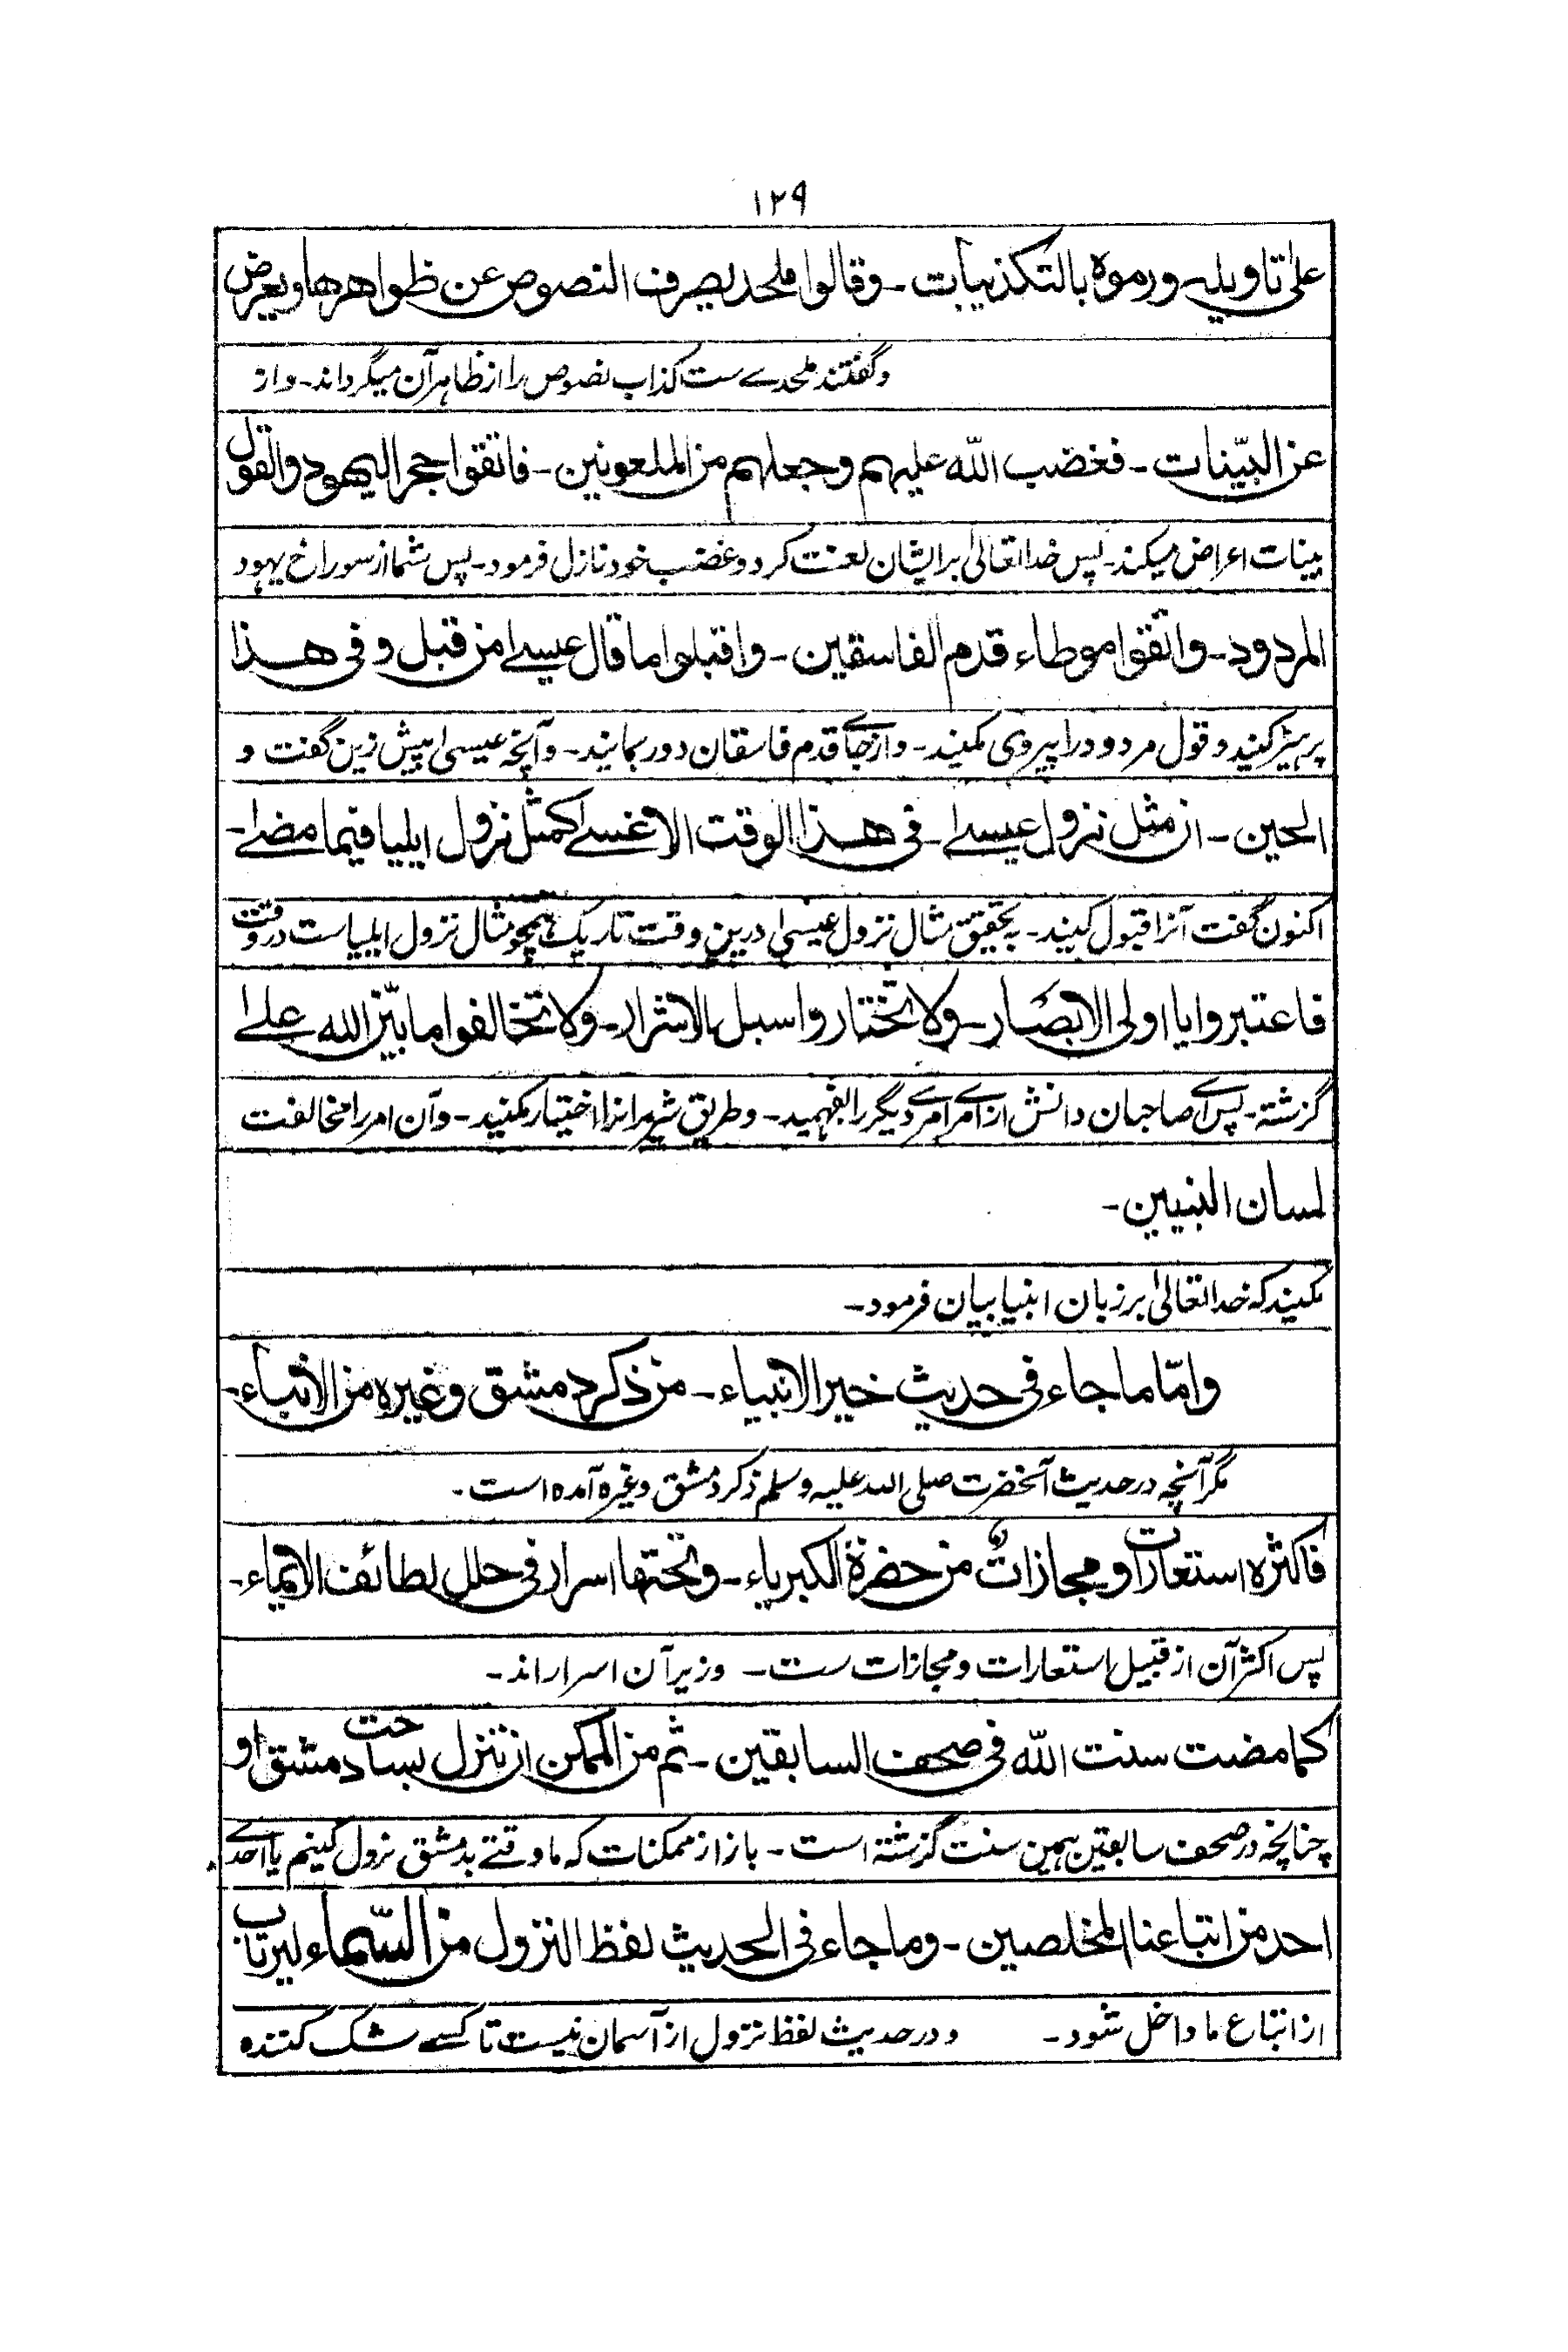 ١٢٩
علٰی تاویلہ۔ ورموہ بالتکذیبات۔ وقالوا ملحد یصرف النصوص عن ظواھرھا ویعرض
وگفتند ملحدے ست کذاب نصوص را از ظاہر آن میگرداند۔ واز
عن البیّنات۔ فغضب اللّٰہ علیہم وجعلہم من الملعونین۔ فاتقوا حجر الیھود والقول
بینات اعراض میکند۔ پس خدا تعالیٰ برایشان لعنت کرد و غضب خود نازل فرمود۔ پس شما از سوراخ یہود
المردود۔ واتقوا موطاء قدم الفاسقین۔ واقبلوا ما قال عیسےٰ من قبل وفی ھذا
پرہیز کنید و قول مردود را پیروی مکنید۔ و از جائے قدم فاسقان دور بمانید۔ وآنچہ عیسیٰ پیش زین گفت و
الحین۔ ان مثل نزول عیسےٰ۔ فی ھذا الوقت الاغسےٰ کمثل نزول ایلیا فیما مضےٰ۔
اکنون گفت آنرا قبول کنید۔ بہ تحقیق مثال نزول عیسیٰ درین وقت تاریک ہمچو مثال نزول ایلیا ست در وقت
فاعتبروا یا اولی الابصار۔ ولا تختاروا سبل الاشرار۔ ولا تخالفوا ما بیّن اللہ علےٰ
گزشتہ۔ پس اے صاحبان دانش از امرے امرے دیگر را بفہمید۔ و طریق شریرانرا اختیار مکنید۔ وآن امر را مخالفت
لسان النبیین۔
مکنید کہ خدا تعالیٰ بر زبان انبیا بیان فرمود۔
وامّا ما جاء فی حدیث خیر الانبیاء۔ من ذکر دمشق وغیرہ من الانباء۔
مگر آنچہ در حدیث آنحضرت صلی اللہ علیہ وسلم ذکر دمشق وغیرہ آمدہ است۔
فاکثرہ استعارات ومجازات من حضرۃ الکبریاء۔ وتحتھا اسرار فی حلل لطائف الایماء۔
پس اکثر آن از قبیل استعارات ومجازات ست۔ وزیر آن اسرار اند۔
کما مضت سنت اللّٰہ فی صحف السابقین۔ ثم من الممکن ان ننزل بساحت دمشق او
چنانچہ در صحف سابقین ہمین سنت گزشتہ است۔ باز از ممکنات کہ ما وقتے بدمشق نزول کنیم یا احدے
احد من اتباعنا المخلصین۔ وما جاء فی الحدیث لفظ النزول من السّماء لیرتاب
از اتباع ما داخل شود۔ ودر حدیث لفظ نزول از آسمان نیست تا کسے شک کنندہ